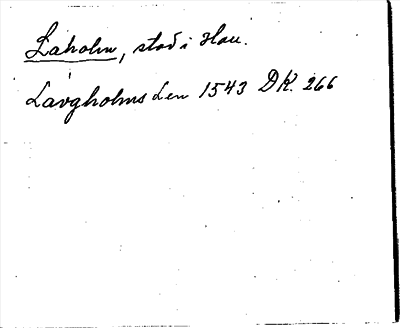 Laholm, stad i Hall.
Lavgholms Len 1543 DK. 266